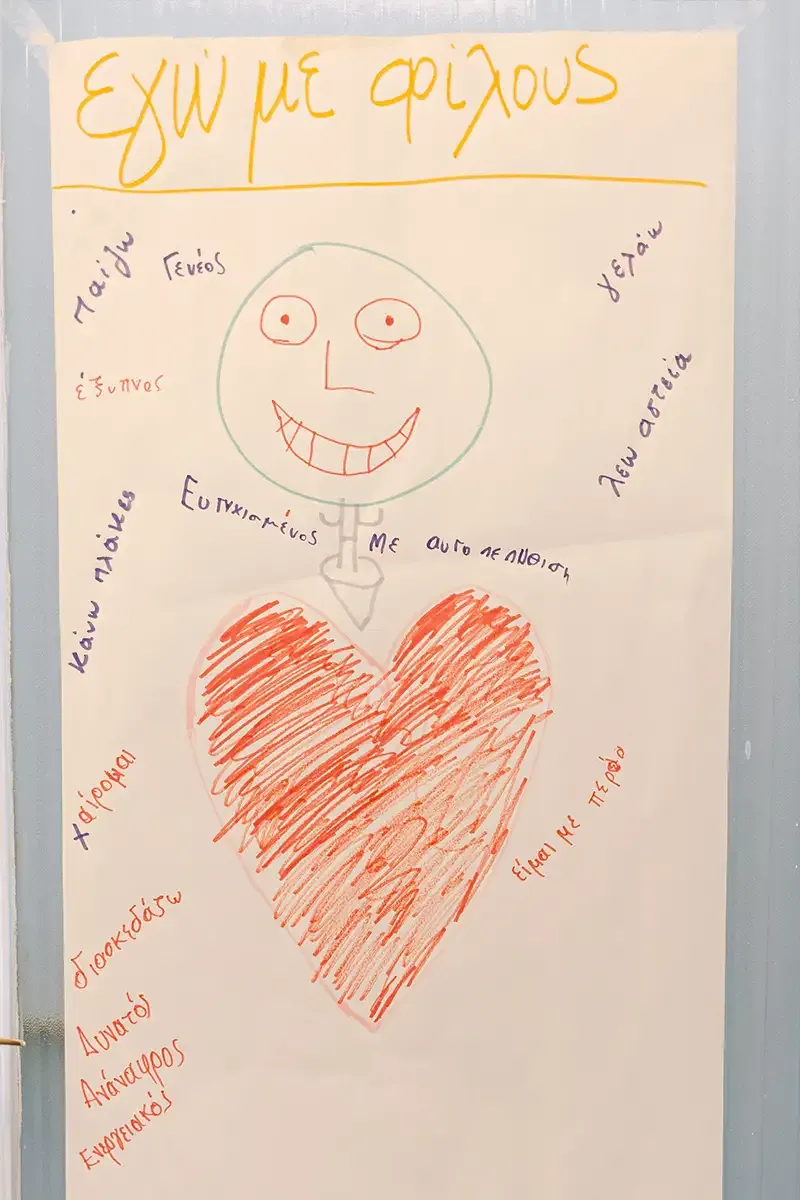 εγώ με φίλους
παίζω
Γενέος
γελάω
έξυπνος
λεω αστεία
Ευτυχισμένος με αυτο πεπΠθιση
κάνω πλάκες
χαίρομαι
είμαι με
διασκεδάζω
Δυνατός
Ανάναφρος
Ενεργειακός